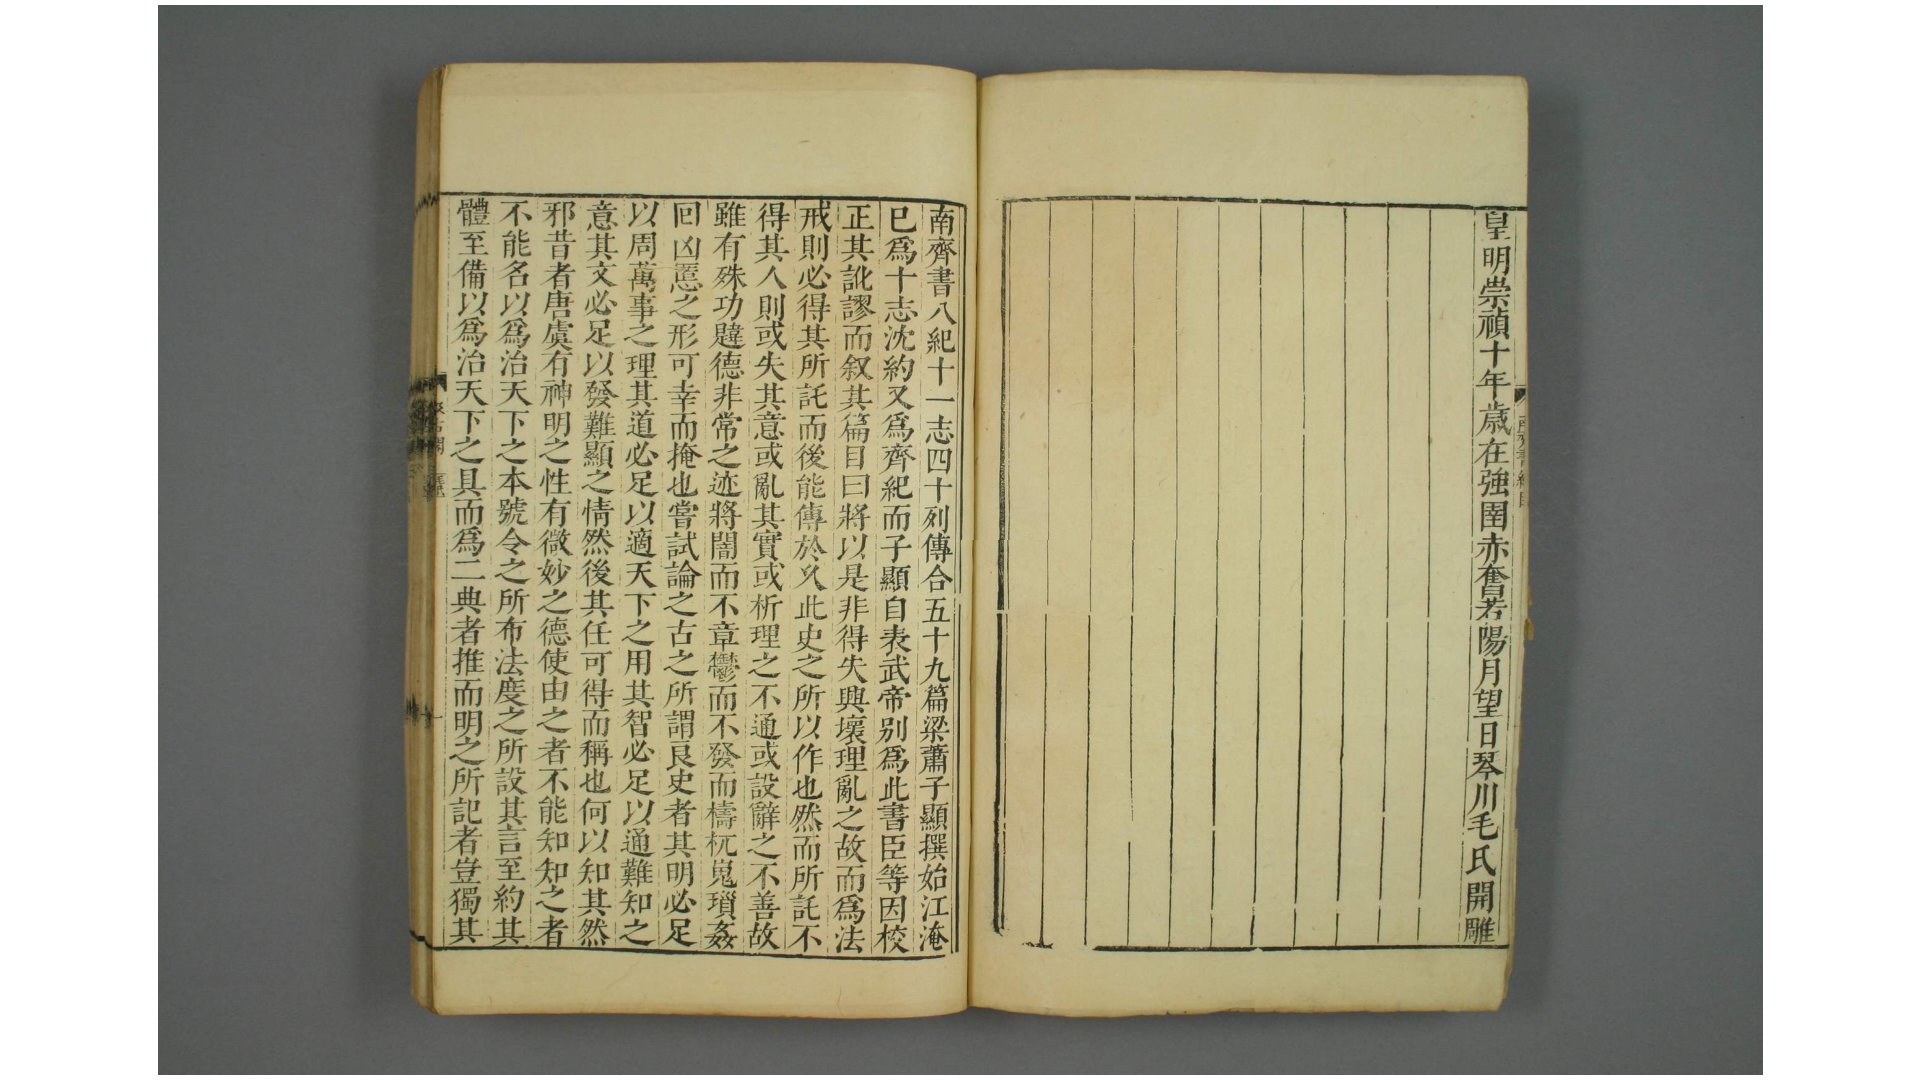 皇明崇禎十年歲在強圉赤奮若陽月望日琴川毛氏開雕
南齊書八紀十一志四十列傳合五十九篇梁蕭子顯撰始江淹
已爲十志沈約又爲齊紀而子顯自表武帝别爲此書臣等因校
正其訛謬而叙其篇目曰將以是非得失興壞理亂之故而爲法
戒則必得其所託而後能傳於久此史之所以作也然而所託不
得其人則或失其意或亂其實或析理之不通或設辭之不善故
雖有殊功韙德非常之迹將闇而不章鬱而不發而檮杌嵬瑣姦
回凶慝之形可幸而掩也嘗試論之古之所謂良史者其明必足
以周萬事之理其道必足以適天下之用其智必足以通難知之
意其文必足以發難顯之情然後其任可得而稱也何以知其然
邪昔者唐虞有神明之性有微妙之德使由之者不能知知之者
不能名以爲治天下之本號令之所布法度之所設其言至約其
體至備以爲治天下之具而爲二典者推而明之所記者豈獨其